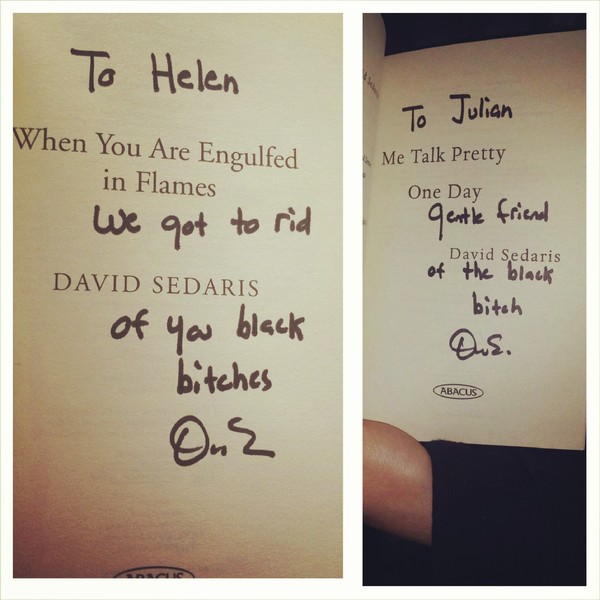 To Helen
When You Are Engulfed
in Flames
We got to rid
DAVID SEDARIS
of you black
bitches
ABACUS
To Julian
Me Talk Pretty
One Day
gentle friend
David Sedaris
of the black
bitch
ABACUS